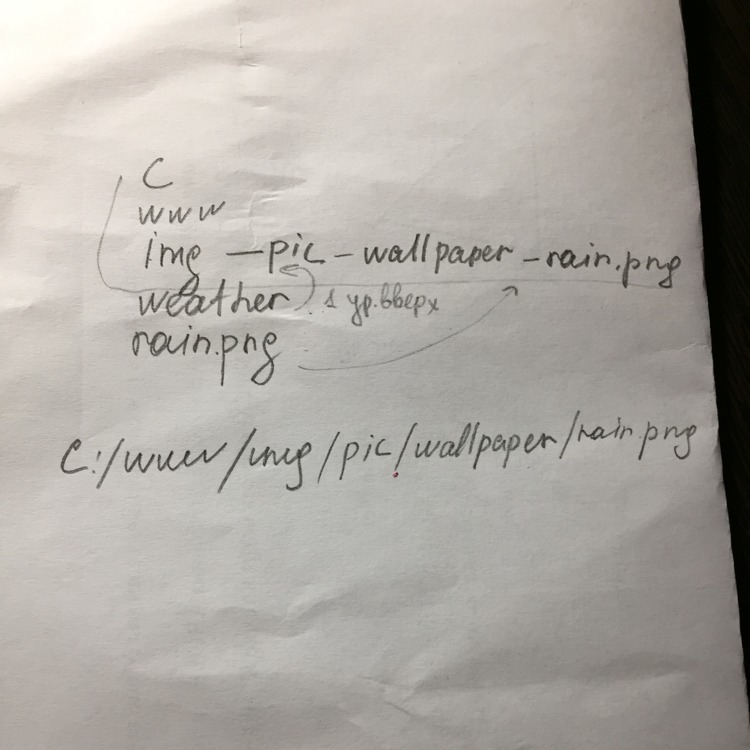 C
www
img – pic – wallpaper – rain.png
weather 1 ур. вверх
rain.png
C:/www/img/pic/wallpaper/rain.png